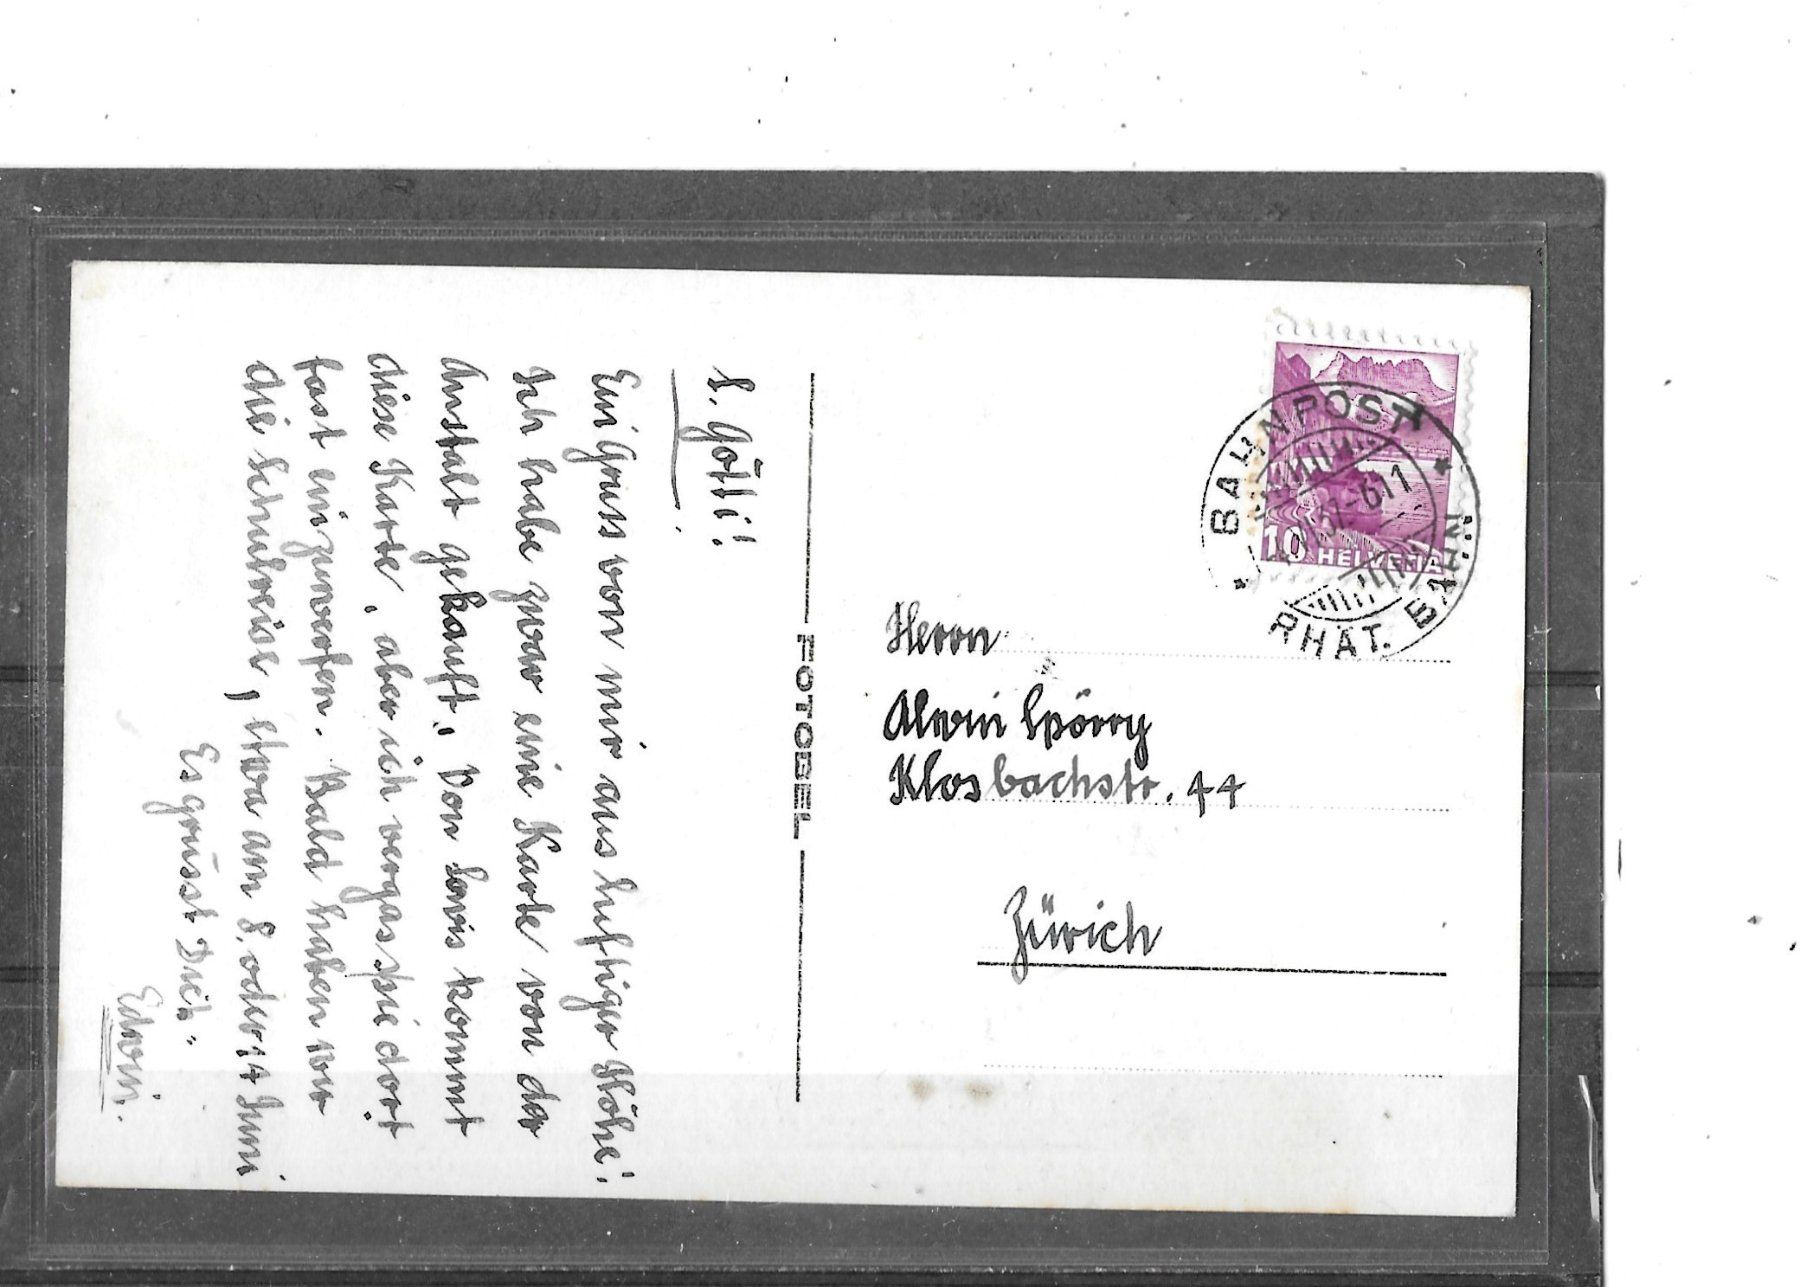 L. Götti!
Ein Gruss von mir aus luftiger Höhe!
Ich habe zwar eine Karte von der
Anstalt gekauft. Von Lavis kommt
diese Karte, aber ich vergass sie dort
fast einzuwerfen. Bald haben wir
die Schulreise, etwa am 8. oder 14 Juni
Es grüsst Dich:
Edwin.
FOTOBEL
HELVETIA
10
BAHNPOST
RHÄT. BAHN
Herrn
Alwin Spörry
Klosbachstr. 44
Zürich